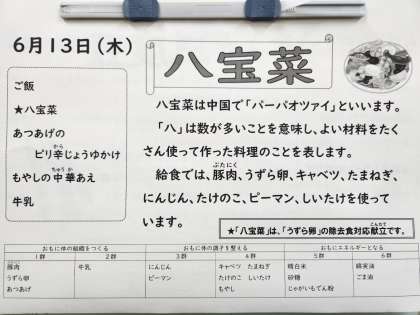 6月13日(木)
八宝菜
ご飯
★八宝菜
あつあげの
ピリ辛じょうゆかけ
もやしの中華あえ
牛乳
八宝菜は中国で「パーパオツァイ」といいます。
「八」は数が多いことを意味し、よい材料をたく
さん使って作った料理のことを表します。
給食では、豚肉、うずら卵、キャベツ、たまねぎ、
にんじん、たけのこ、ピーマン、しいたけを使って
います。
★「八宝菜」は、「うずら卵」の除去食対応献立です。
おもに体の組織をつくる おもに体の調子を整える おもにエネルギーとなる
1群 2群 3群 4群 5群 6群
豚肉 牛乳 にんじん キャベツ たまねぎ 精白米 綿実油
うずら卵 ピーマン たけのこ しいたけ 砂糖 ごま油
あつあげ もやし じゃがいもでん粉